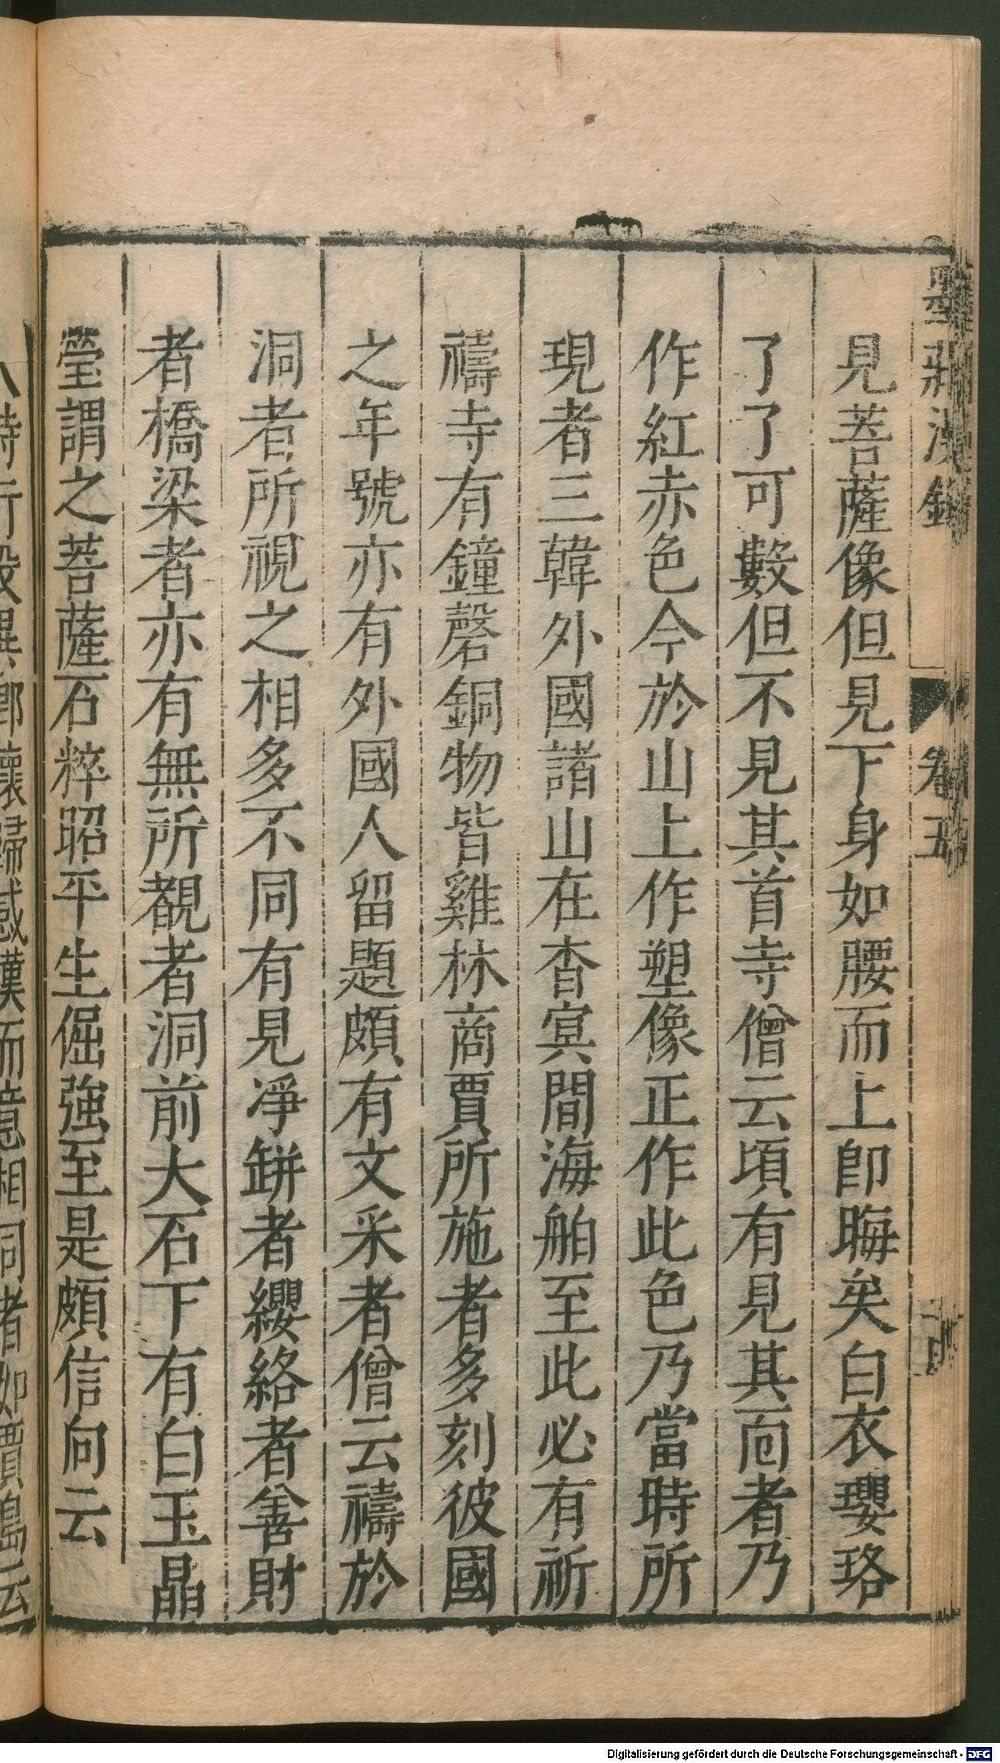 墨莊漫錄 卷五
見菩薩像但見下身如腰而上卽晦矣白衣瓔珞
了了可數但不見其首寺僧云頃有見其面者乃
作紅赤色今於山上作塑像正作此色乃當時所
現者三韓外國諸山在杳冥間海舶至此必有祈
禱寺有鐘磬銅物皆雞林商賈所施者多刻彼國
之年號亦有外國人留題頗有文采者僧云禱於
洞者所視之相多不同有見淨缾者纓絡者善財
者橋梁者亦有無所覩者洞前大石下有白玉晶
瑩謂之菩薩石粹昭平生倔強至是頗信向云
Digitalisierung gefördert durch die Deutsche Forschungsgemeinschaft - DFG